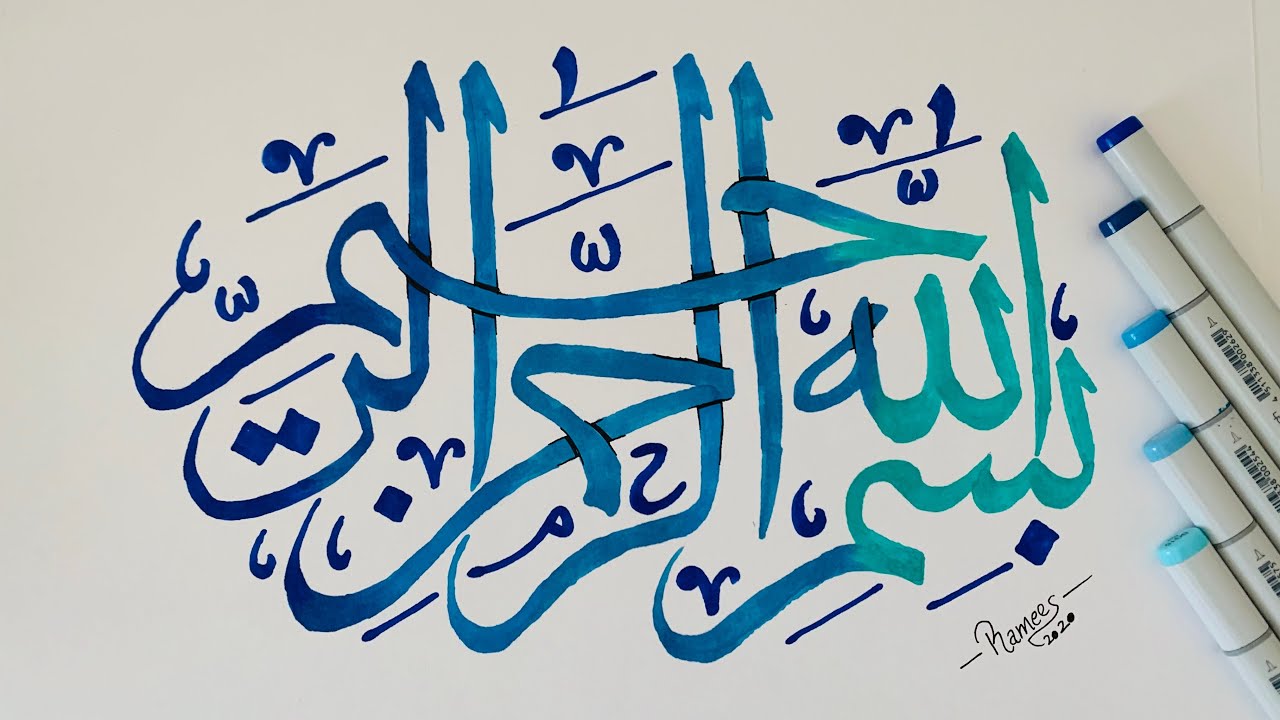 بِسْمِ اللَّهِ الرَّحْمٰنِ الرَّحِيمِ
Ramees
2020